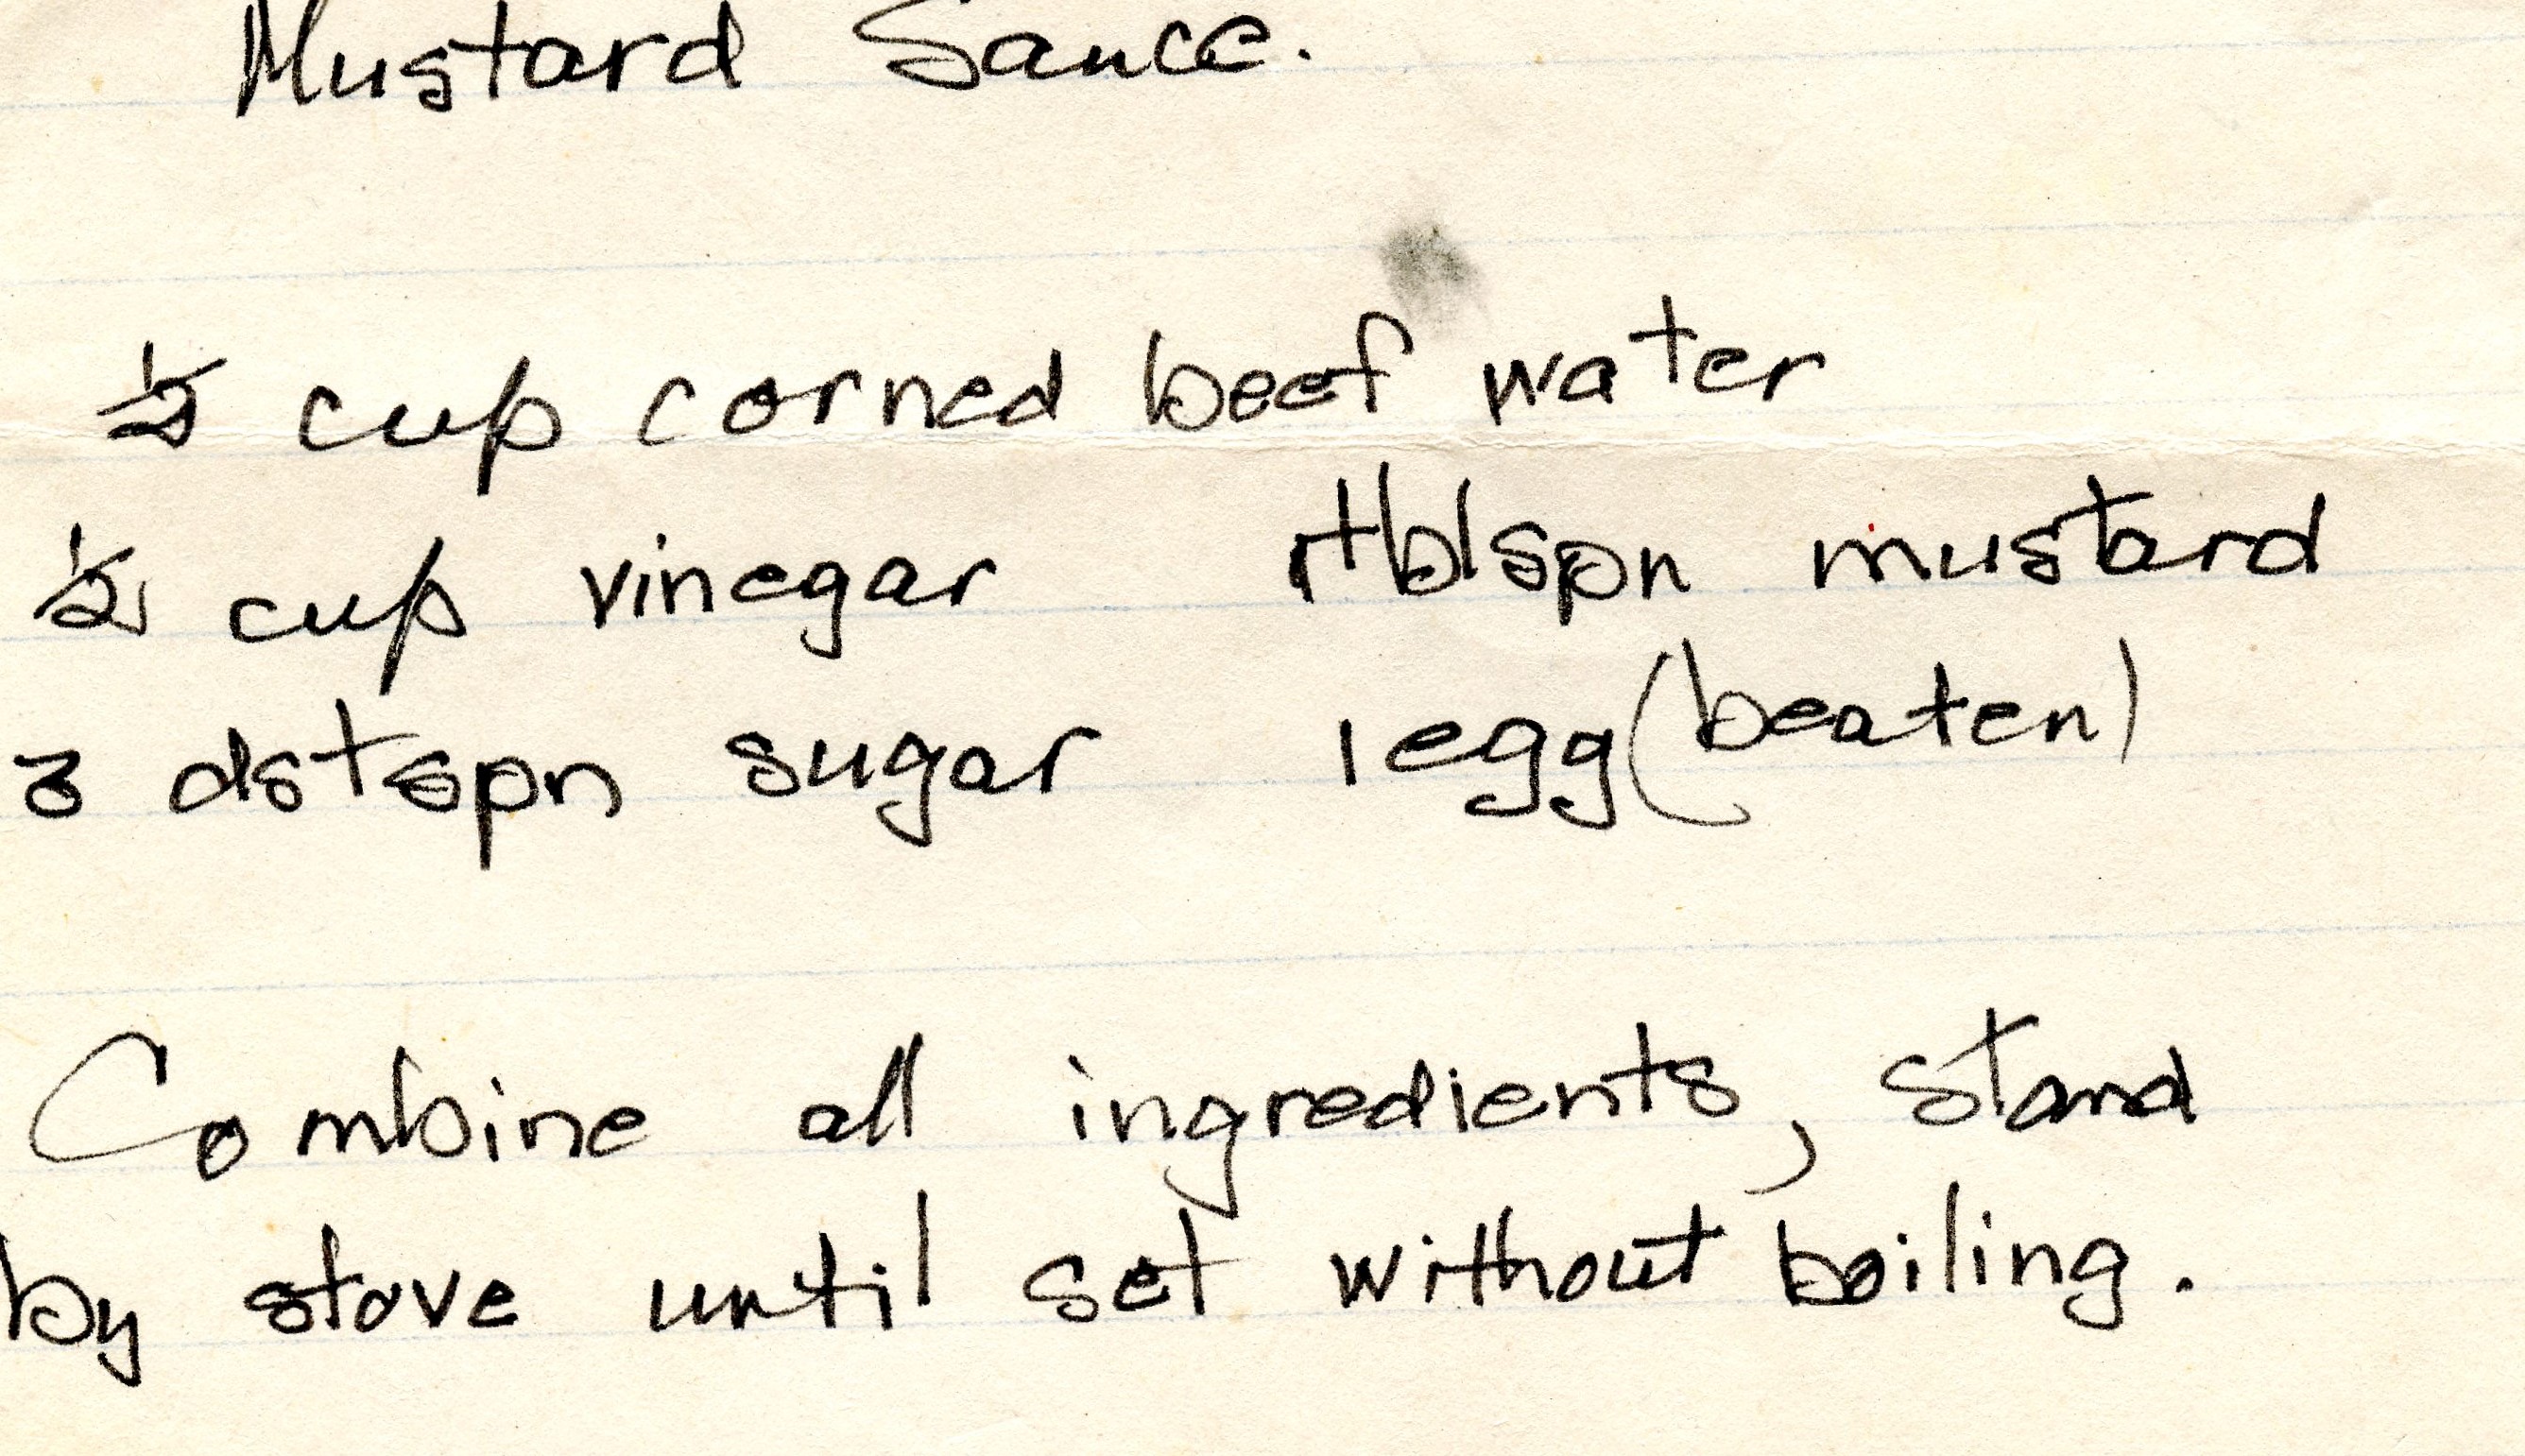 Mustard Sauce.
½ cup corned beef water
½ cup vinegar 1 tblspn mustard
3 dstspn sugar 1 egg (beaten)
Combine all ingredients, stand
by stove until set without boiling.